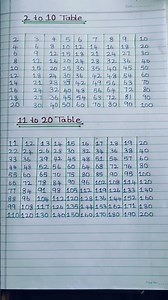 2 to 10 Table
2 3 4 5 6 7 8 9 10
4 6 8 10 12 14 16 18 20
6 9 12 15 18 21 24 27 30
8 12 16 20 24 28 32 36 40
10 15 20 25 30 35 40 45 50
12 18 24 30 36 42 48 54 60
14 21 28 35 42 49 56 63 70
16 24 32 40 48 56 64 72 80
18 27 36 45 54 63 72 81 90
20 30 40 50 60 70 80 90 100
11 to 20 Table
11 12 13 14 15 16 17 18 19 20
22 24 26 28 30 32 34 36 38 40
33 36 39 42 45 48 51 54 57 60
44 48 52 56 60 64 68 72 76 80
55 60 65 70 75 80 85 90 95 100
66 72 78 84 90 96 102 108 114 120
77 84 91 98 105 112 119 126 133 140
88 96 104 112 120 128 136 144 152 160
99 108 117 126 135 144 153 162 171 180
110 120 130 140 150 160 170 180 190 200